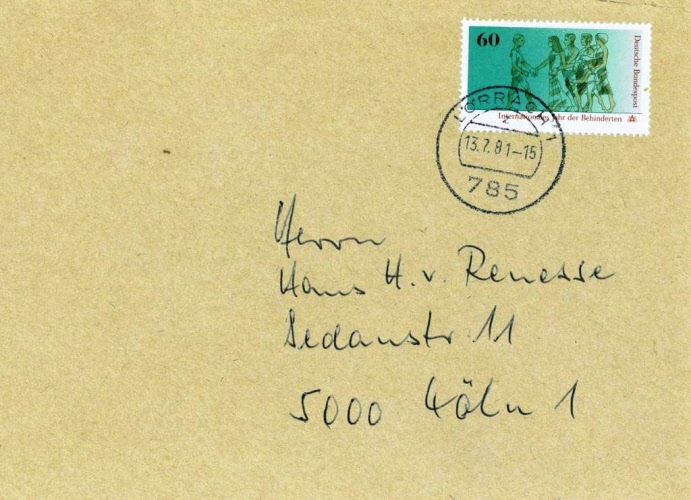 60
Deutsche Bundespost
Internationales Jahr der Behinderten
LÖRRACH 1
z
13.7.81-15
785
Herrn
Hans H. v. Renesse
Sedanstr. 11
5000 Köln 1